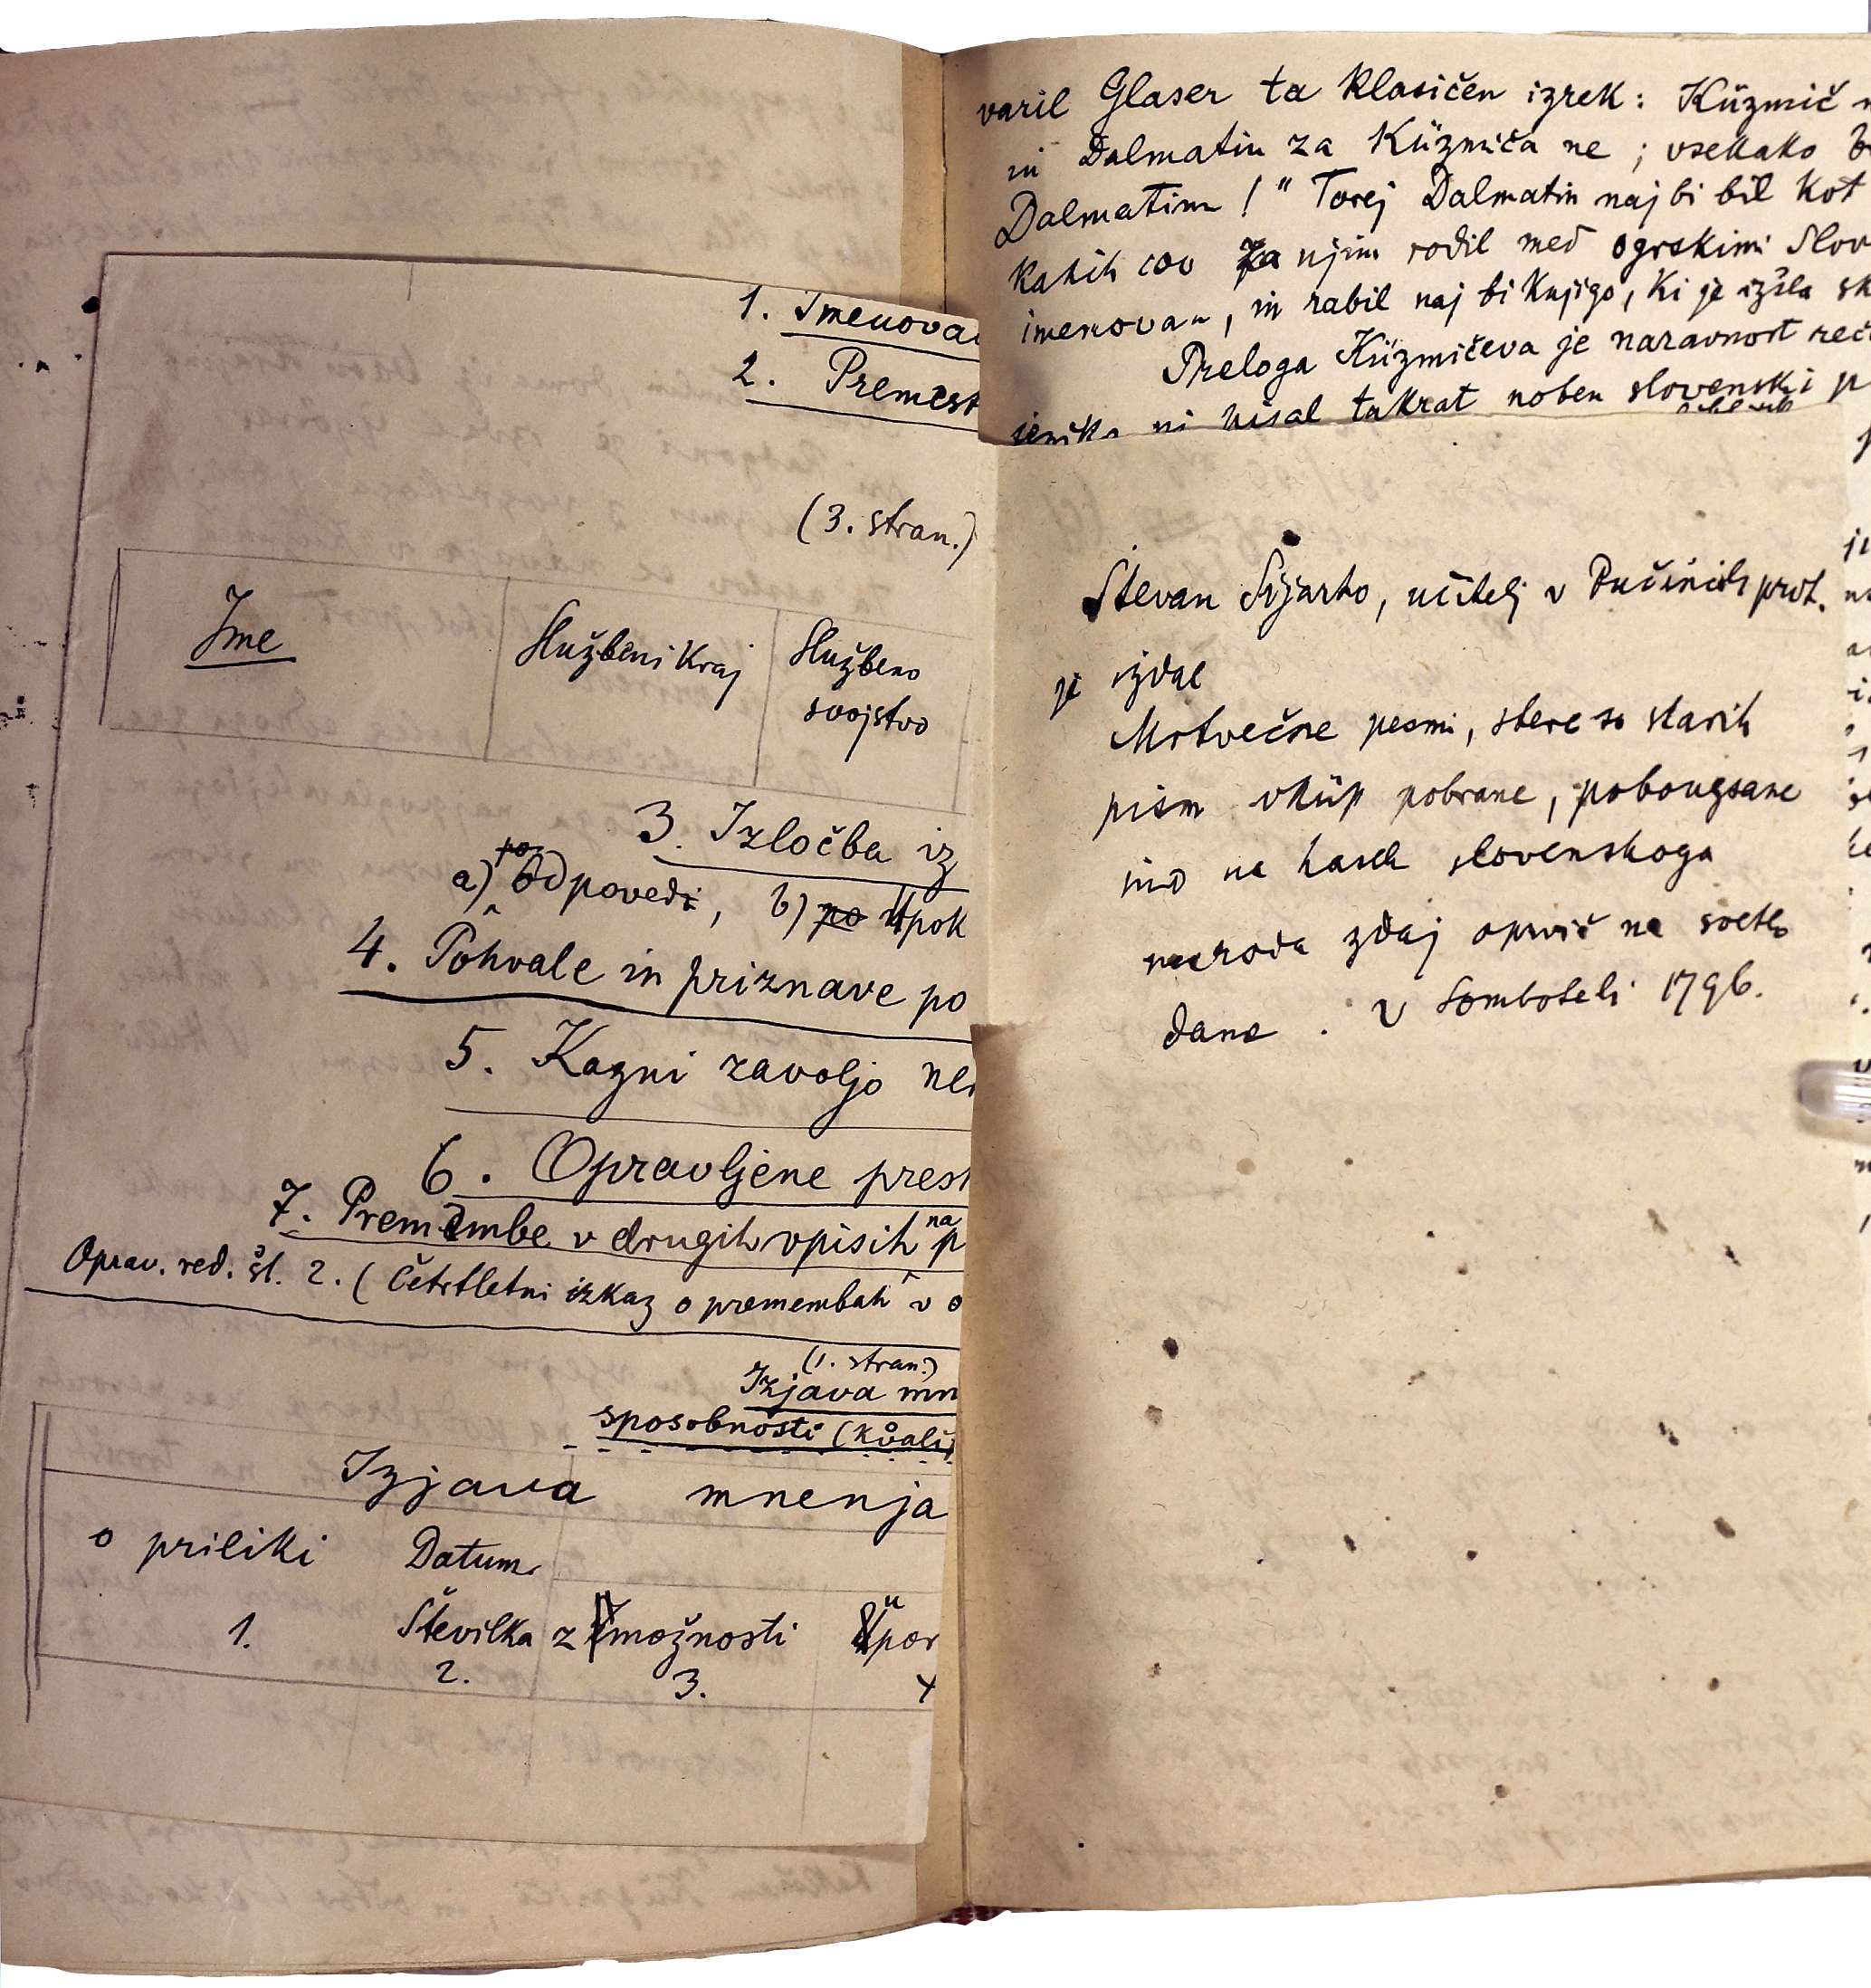 1. Imenova
2. Premest
(3. stran.)
Ime Službeni kraj Službeno
svojstvo
3. Izločba iz
po
a) Odpovedi, b) po Upok
4. Pohvale in priznave po
5. Kazni zavoljo ne
6. Opravljene prest
na
7. Premembe v drugih vpisih p
Oprav. red. št. 2. (Četrtletni izkaz o premembah v o
(1. stran.)
Izjava mn
sposobnosti (kvali
Izjava mnenja
o priliki Datum
1. Številka zmožnosti Upor
2. 3. 4
varil Glaser ta klasičen izrek: Küzmič n
in Dalmatin za Küzmiča ne; vsekako b
Dalmatinu!" Torej Dalmatin naj bi bil kot
kakih 200 za njim rodil med ogrskimi Slov
imenovan, in rabil naj bi knjigo, ki je izšla sk
Preloga Küzmičeva je naravnost reč
jezika ni pisal takrat noben slovenski p
Števan Sijarto, učitelj v Pučincih prot.
je izdal
Mrtvečne pesmi, štere so starih
pism vküp pobrane, pobougšane
ino na hasek slovenskoga
naroda zdaj oprvič na svetlo
dane. V Somboteli 1796.